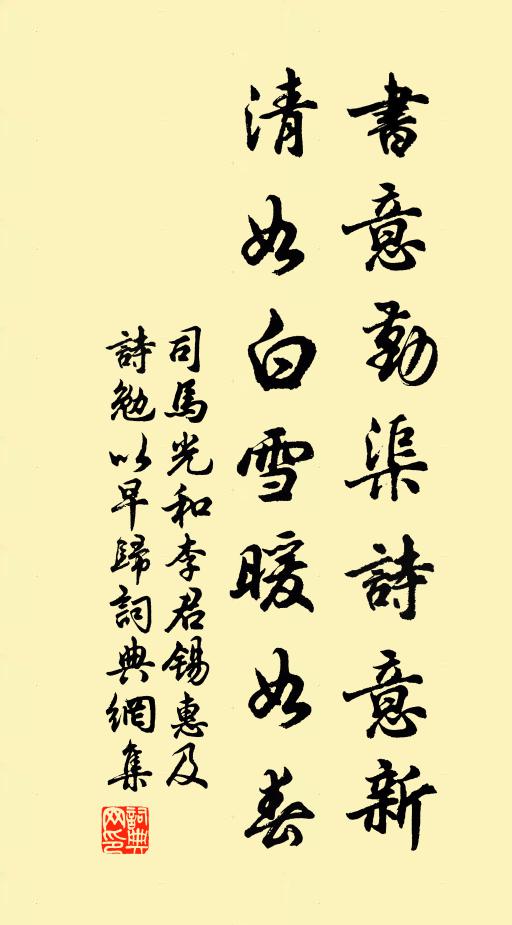 書意勤渠詩意新
清如白雪暖如春
司馬光和李君錫惠及
詩勉以早歸詞典網集
詞典
网印